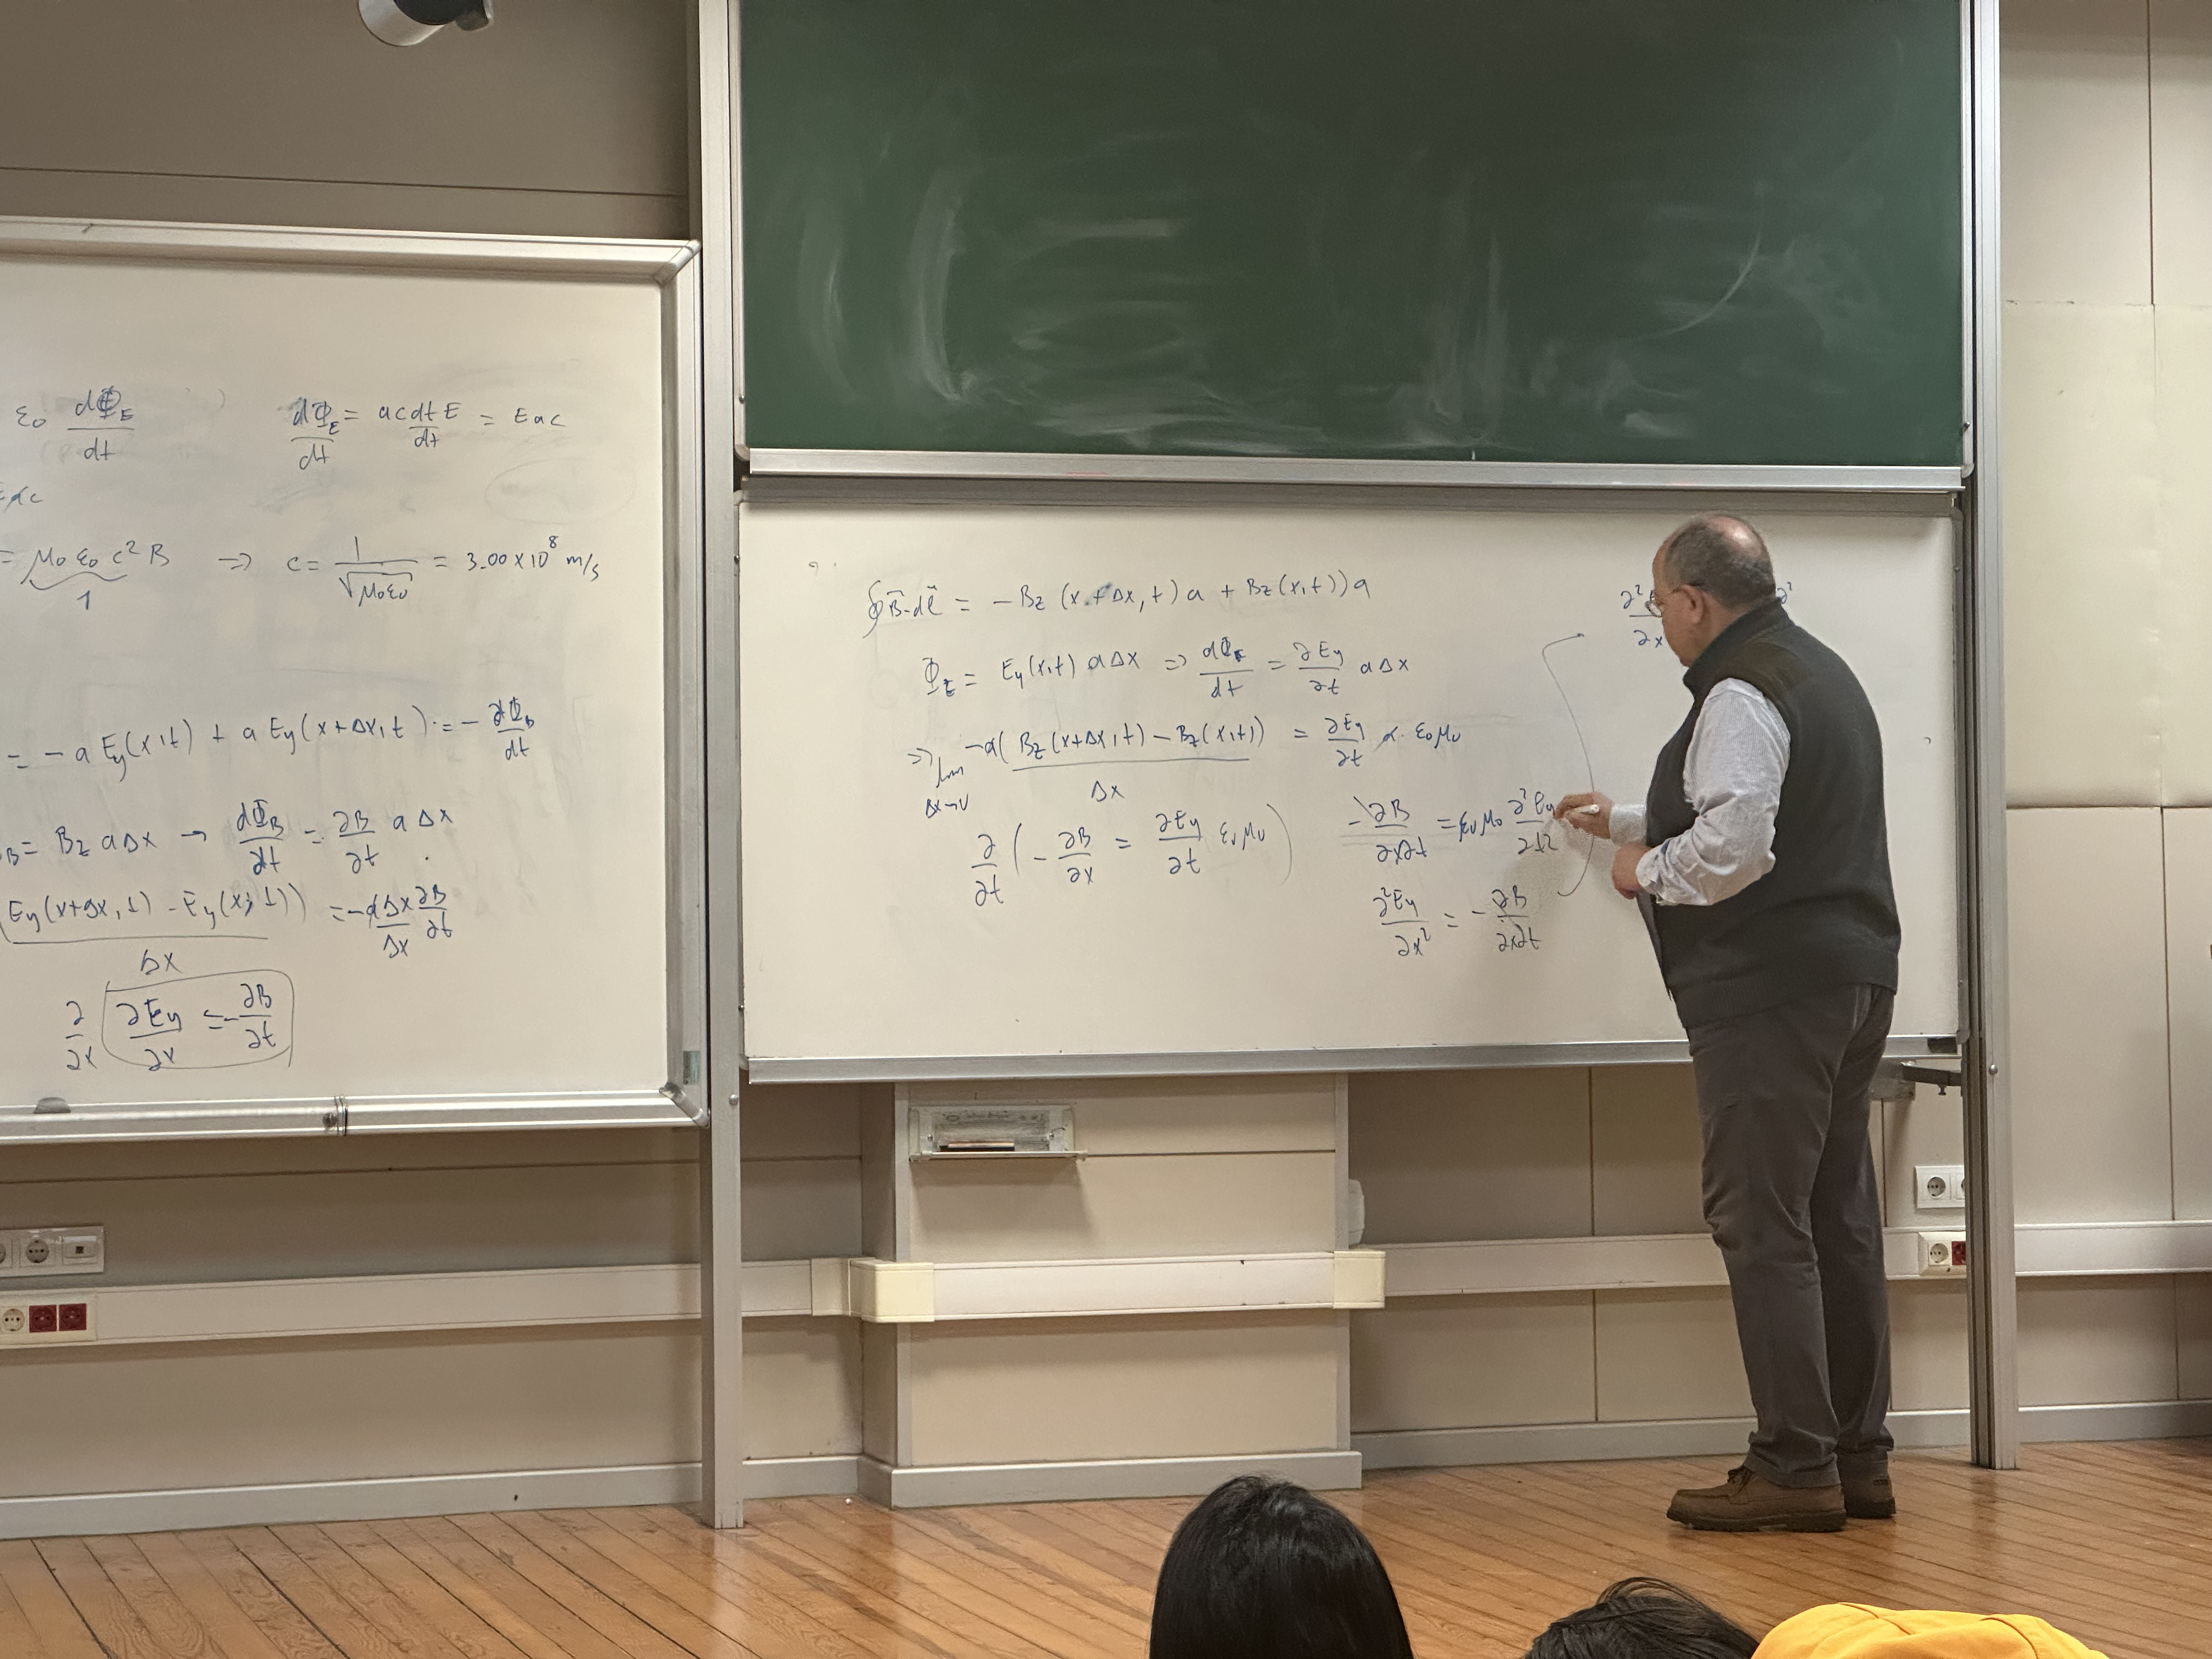 ε₀ dΦ_E/dt    dΦ_E/dt = ac dt E/dt = Eac
Eac
= μ₀ε₀c²B ⇒ c = 1/√(μ₀ε₀) = 3.00 × 10⁸ m/s
1
= -a E_y(x,t) + a E_y(x+Δx,t) = - dΦ_B/dt
B = B_z aΔx → dΦ_B/dt = ∂B/∂t a Δx
(E_y(x+Δx,t) - E_y(x,t))/Δx = -a Δx/Δx ∂B/∂t
∂/∂x ∂E_y/∂x = - ∂B/∂t
∮B⃗·dℓ⃗ = -B_z (x+Δx,t) a + B_z(x,t)) a
Φ_E = E_y(x,t) aΔx ⇒ dΦ_E/dt = ∂E_y/∂t aΔx
⇒ lim Δx→0 -a(B_z(x+Δx,t) - B_z(x,t))/Δx = ∂E_y/∂t a · ε₀μ₀
∂/∂t (- ∂B/∂x = ∂E_y/∂t ε₀μ₀)
-∂B/∂x∂t = ε₀μ₀ ∂²E_y/∂t²
∂²E_y/∂x² = - ∂B/∂x∂t
∂²
∂x
∂²